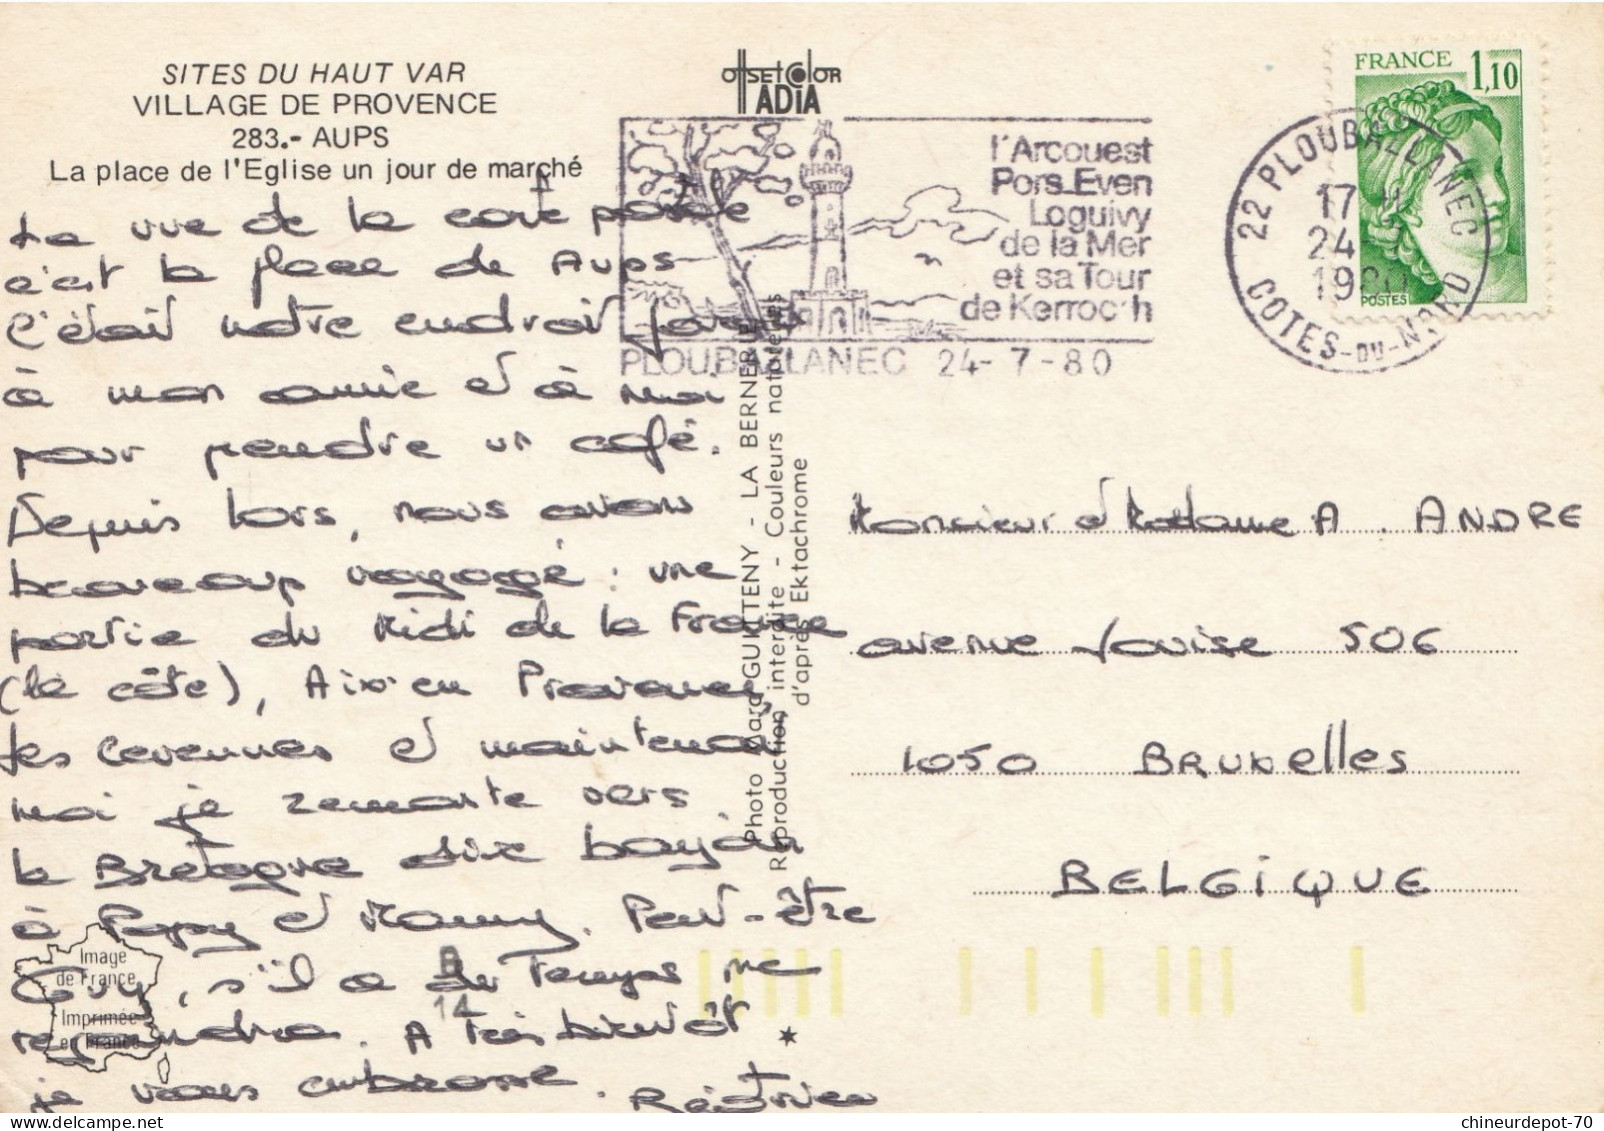 SITES DU HAUT VAR
VILLAGE DE PROVENCE
283.- AUPS
La place de l'Eglise un jour de marché
La vue de la carte postale
c'est la place de Aups
C'était notre endroit favori
à mon amie et à moi
pour prendre un café.
Depuis lors, nous avons
beaucoup voyagé : une
partie du Midi de la France
(la côte), Aix en Provence,
les Cevennes et maintenant
moi je remonte vers
la Bretagne dire bonjour
à Papy et Mamy. Peut-être
Guy, s'il a du temps me
rejoindra. A très bientôt
je vous embrasse.
Béatrice
Image
de France
Imprimée
en France
14
offset color
ADIA
Photo GUITTENY - LA BERNERIE
Reproduction interdite - Couleurs naturelles
d'après Ektachrome
l'Arcouest
Pors-Even
Loguivy
de la Mer
et sa Tour
de Kerroc'h
PLOUBAZLANEC 24-7-80
FRANCE 1,10
POSTES
22 PLOUBAZLANEC
17 H
24
1980
COTES-DU-NORD
Monsieur et Madame A. ANDRE
avenue Louise 506
1050 BRUXelles
BELGIQUE
chineurdepot-70